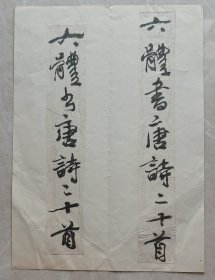 六體書唐詩二十首
六體書唐詩二十首